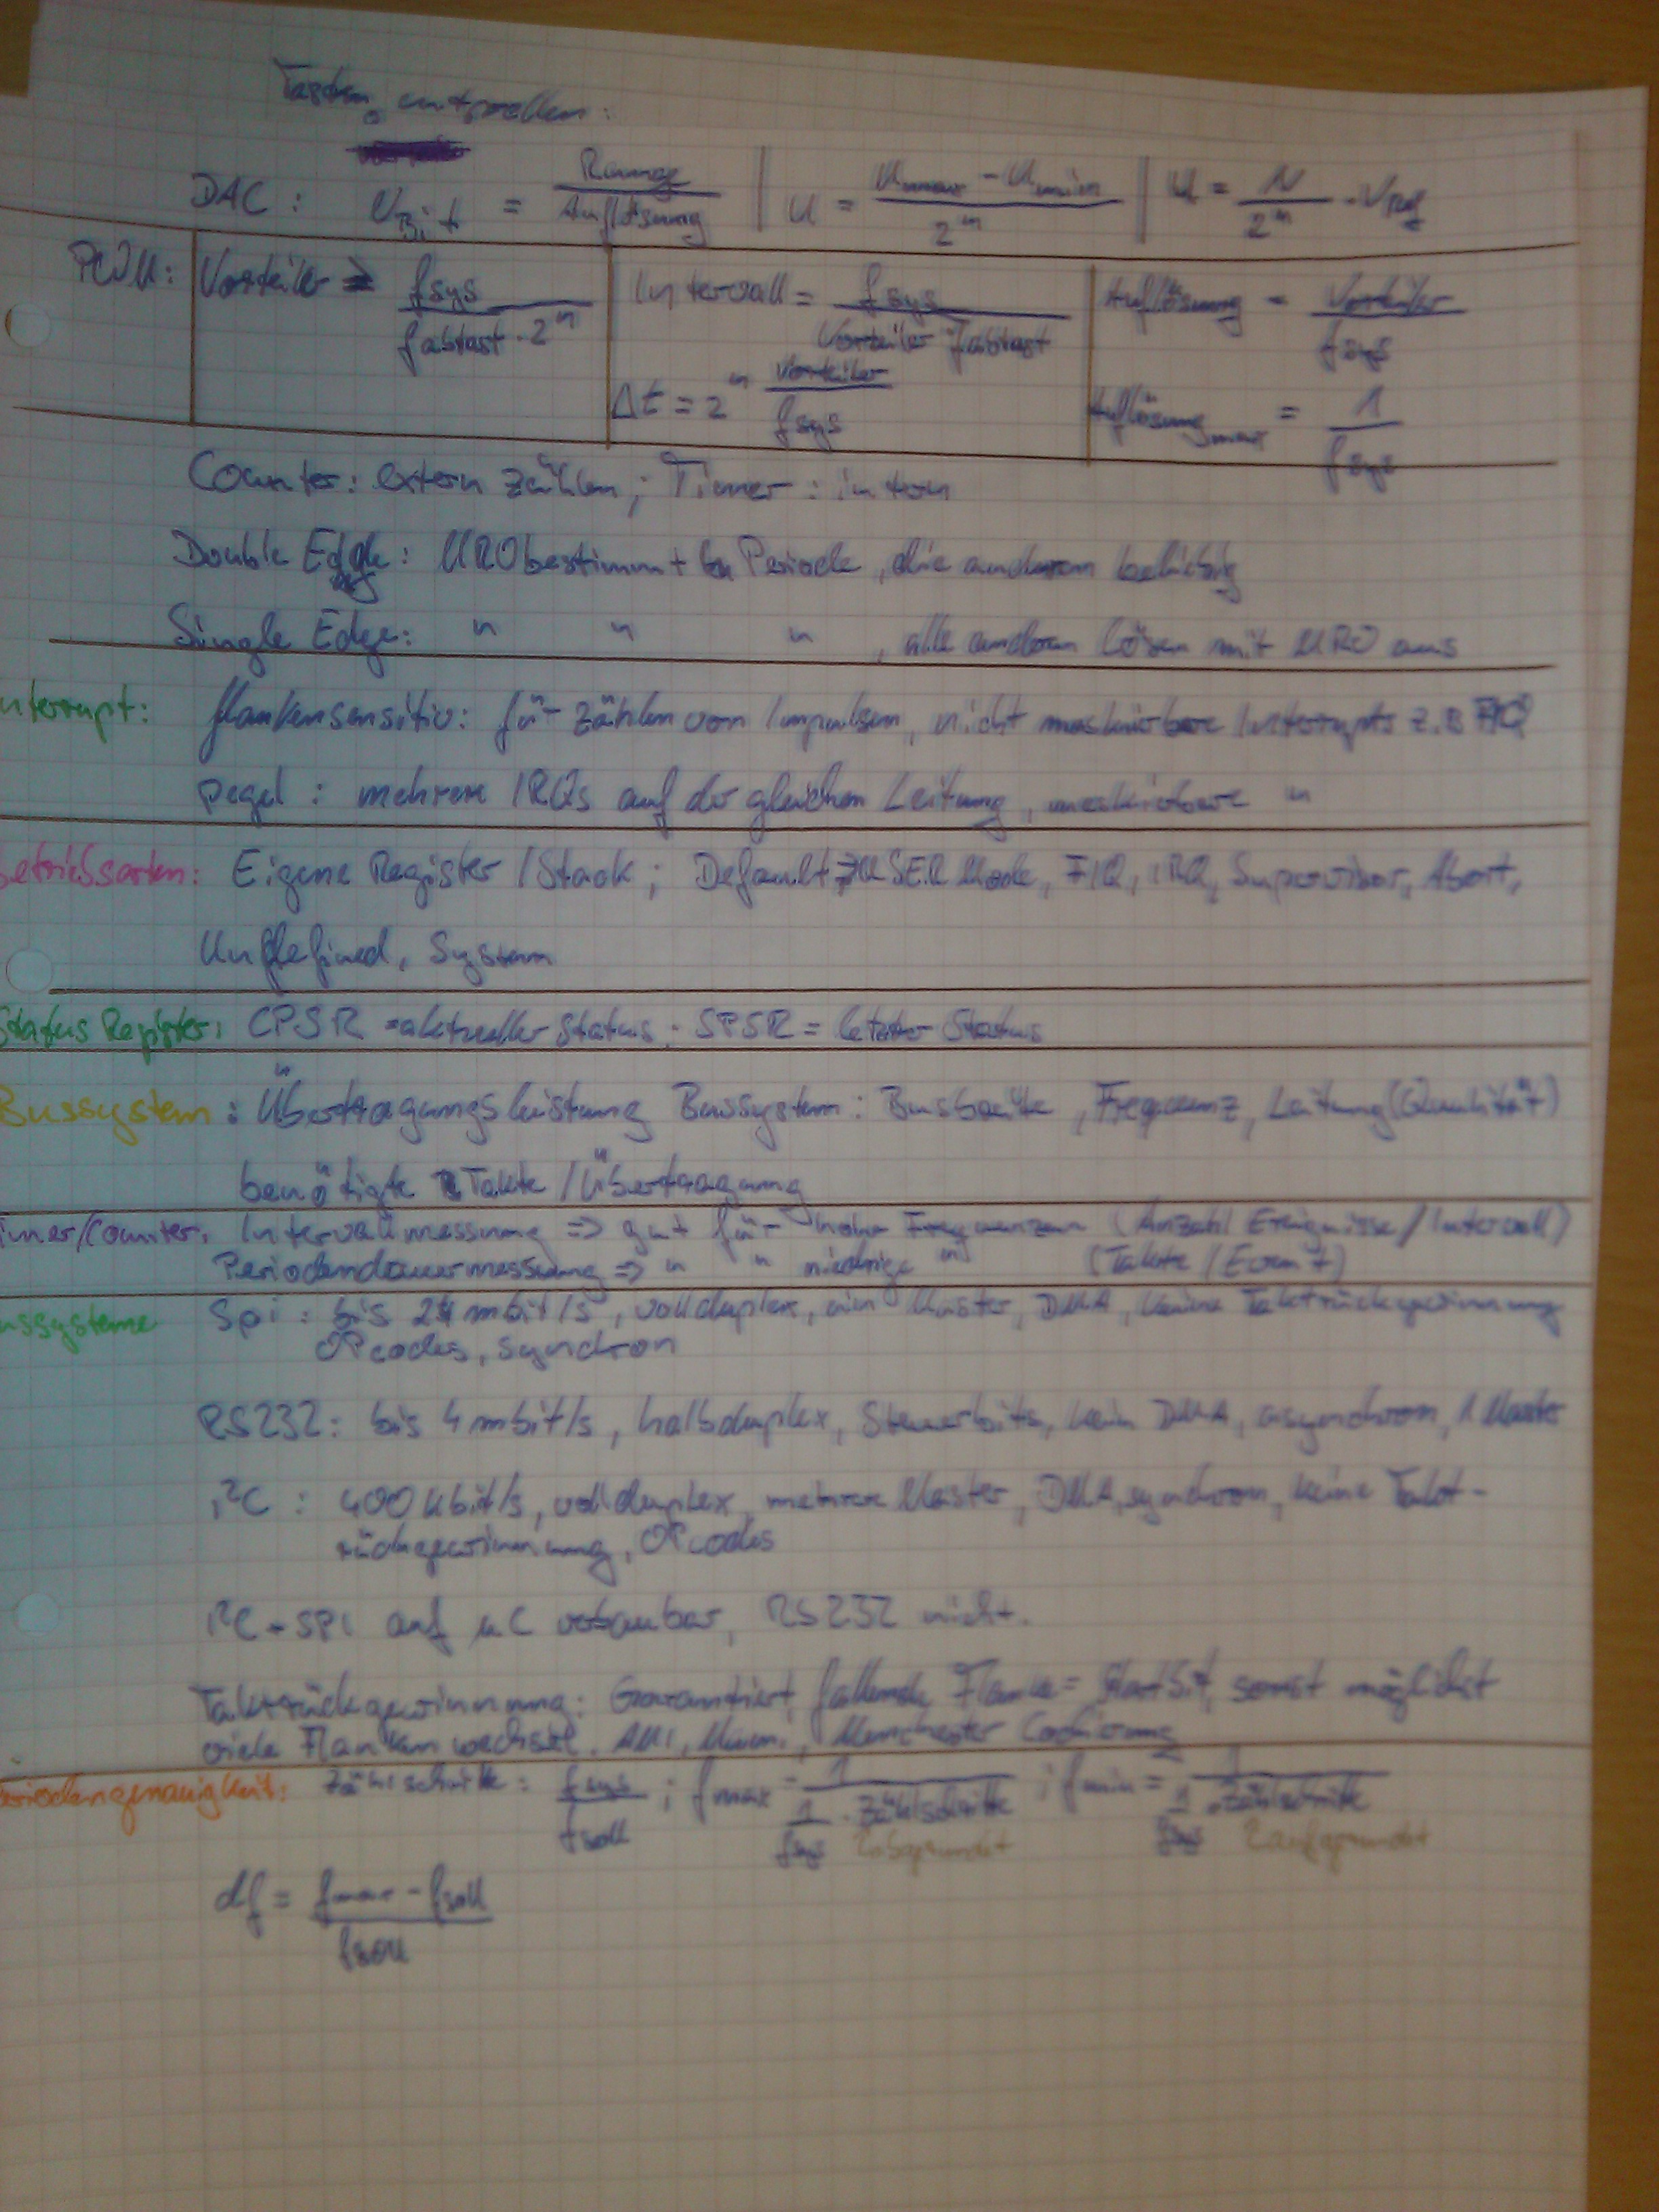 Tasten entprellen:
DAC: U_Bit = Range / Auflösung | U = (Umax - Umin) / 2^n | U = N / 2^n · VRef
PWM: Vorteiler = fsys / (fabtast · 2^n) | Intervall = fsys / (Vorteiler · fabtast) | Auflösung = Vorteiler / fsys
Δt = 2^n Vorteiler / fsys | Auflösung_max = 1 / fsys
Counter: extern zählen; Timer: intern
Double Edge: MR0 bestimmt Periode, die anderen beliebig
Single Edge: " " " , alle anderen lösen mit MR0 aus
nterrupt: flankensensitiv: für zählen von Impulsen, nicht maskierbare Interrupts z.B FIQ
pegel: mehrere IRQs auf der gleichen Leitung, maskierbare "
Betriebsarten: Eigene Register / Stack; Default → USER Mode, FIQ, IRQ, Supervisor, Abort,
Undefined, System
Status Register: CPSR = aktueller Status; SPSR = letzter Status
Bussystem: Übertragungsleistung Bussystem: Busbreite, Frequenz, Leitung (Qualität)
benötigte Takte / Übertragung
imer/Counter: Intervallmessung => gut für hohe Frequenzen (Anzahl Ereignisse / Intervall)
Periodendauermessung => " " niedrige " (Takte / Event)
ussysteme Spi: bis 24 mbit/s, vollduplex, ein Master, DMA, keine Taktrückgewinnung
OPcodes, synchron
RS232: bis 4 mbit/s, halbduplex, Steuerbits, kein DMA, asynchron, 1 Master
I²C: 400 kbit/s, vollduplex, mehrere Master, DMA, synchron, keine Takt-
rückgewinnung, OPcodes
I²C + SPI auf µC verbaubar, RS232 nicht.
Taktrückgewinnung: Garantiert fallende Flanke = Startbit, sonst möglichst
viele Flankenwechsel. AMI, Manchester Codierung
eriodengenauigkeit: Zählschritte: fsys / fsoll ; fmax = 1 / (1/fsys · Zählschritte) ; fmin = 1 / (1/fsys · Zählschritte)
abgerundet aufgerundet
df = (fmax - fsoll) / fsoll